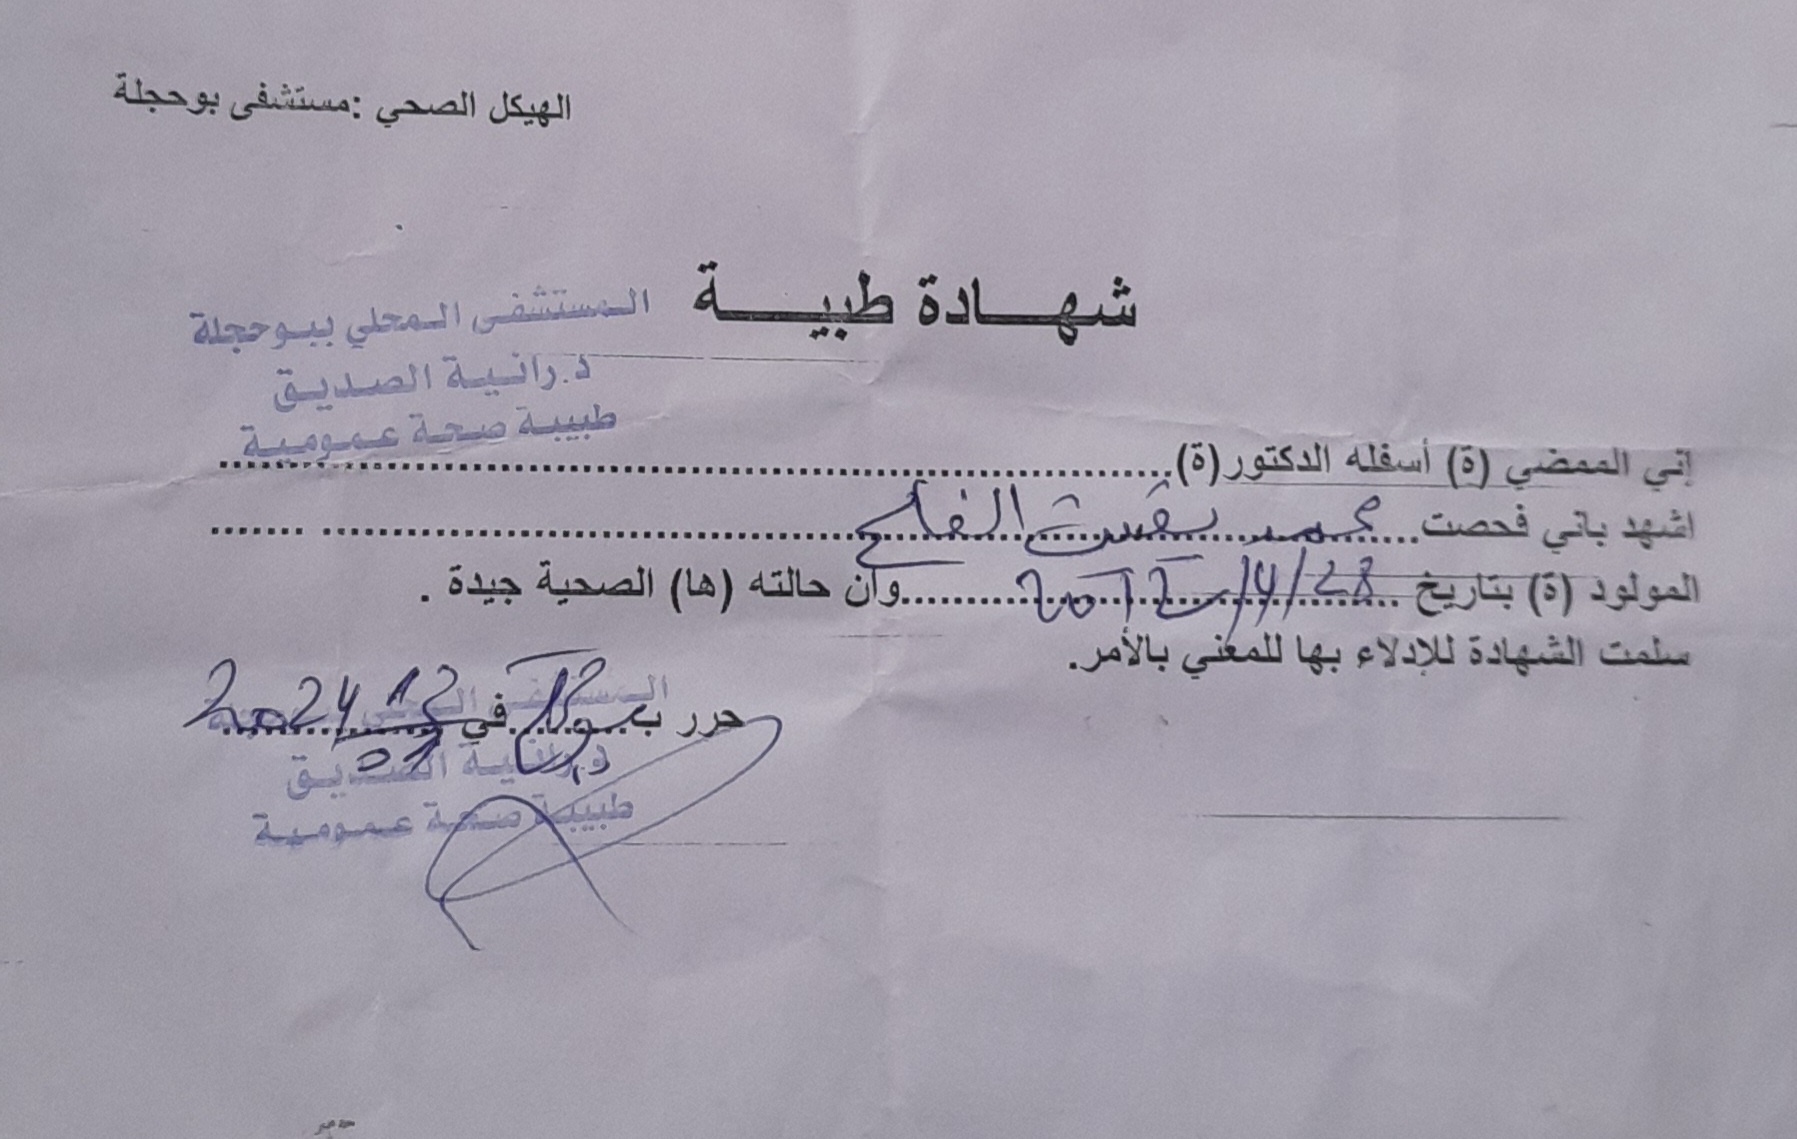 الهيكل الصحي :مستشفى بوحجلة
شهادة طبية
المستشفى المحلي ببوحجلة
د.رانية الصديق
طبيبة صحة عمومية
إني الممضي (ة) أسفله الدكتور(ة)
اشهد باني فحصت محمد الفلح
المولود (ة) بتاريخ 28/4/2012 وأن حالته (ها) الصحية جيدة .
سلمت الشهادة للإدلاء بها للمعني بالأمر.
حرر ب في 2024
المستشفى المحلي
د.رانية الصديق
طبيبة صحة عمومية